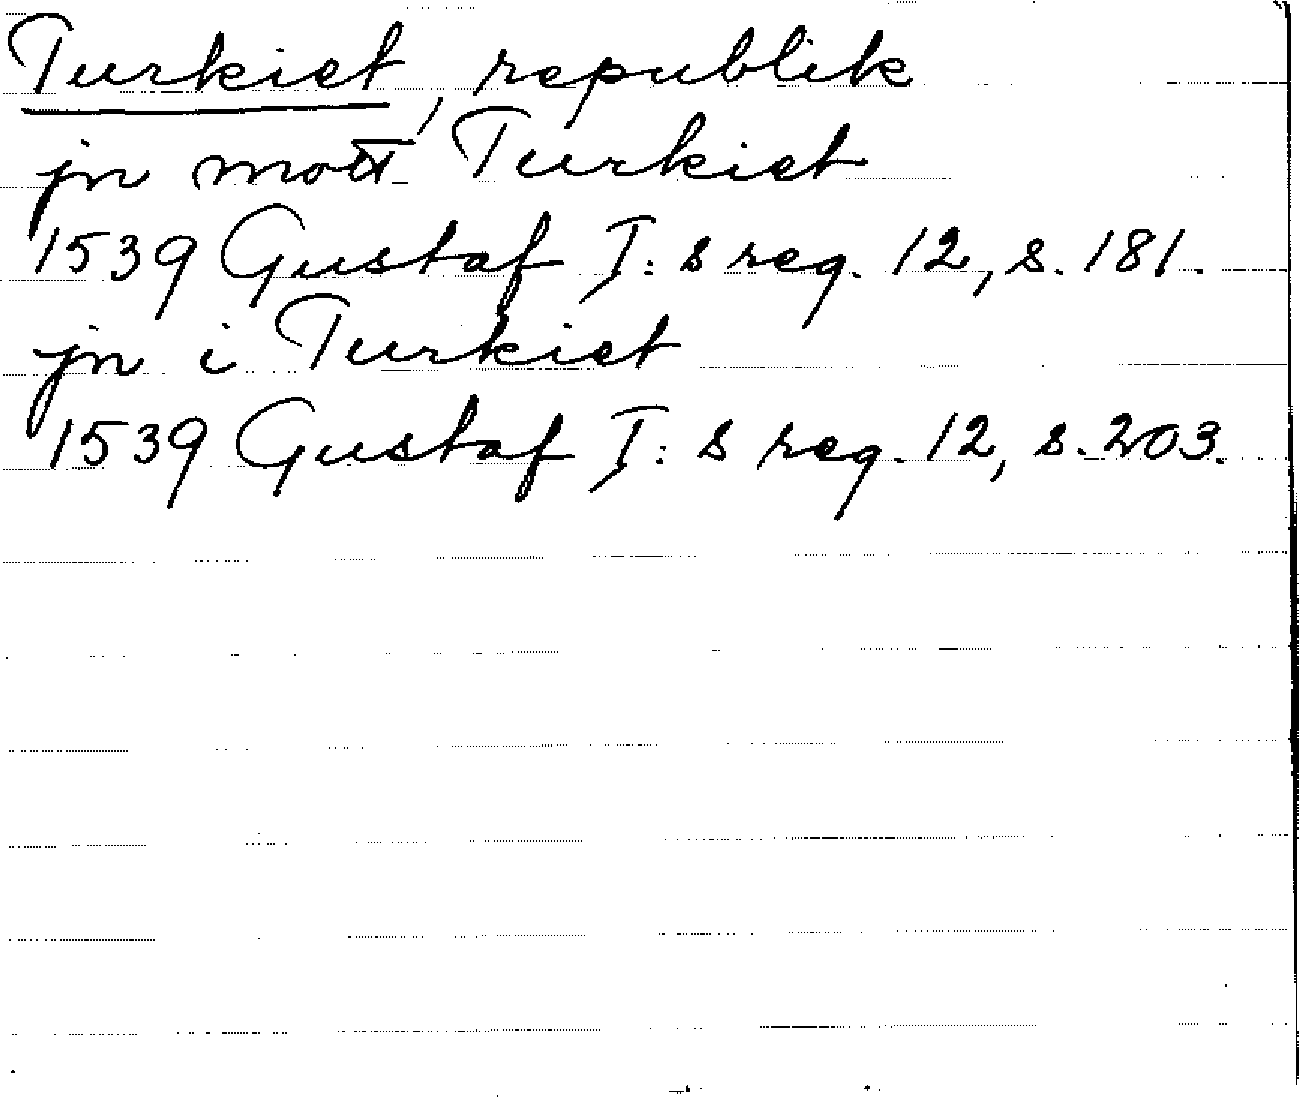 Turkiet, republik
jn mott Turkiet
1539 Gustaf I:s reg. 12, s. 181.
jn i Turkiet
1539 Gustaf I:s reg. 12, s. 203.